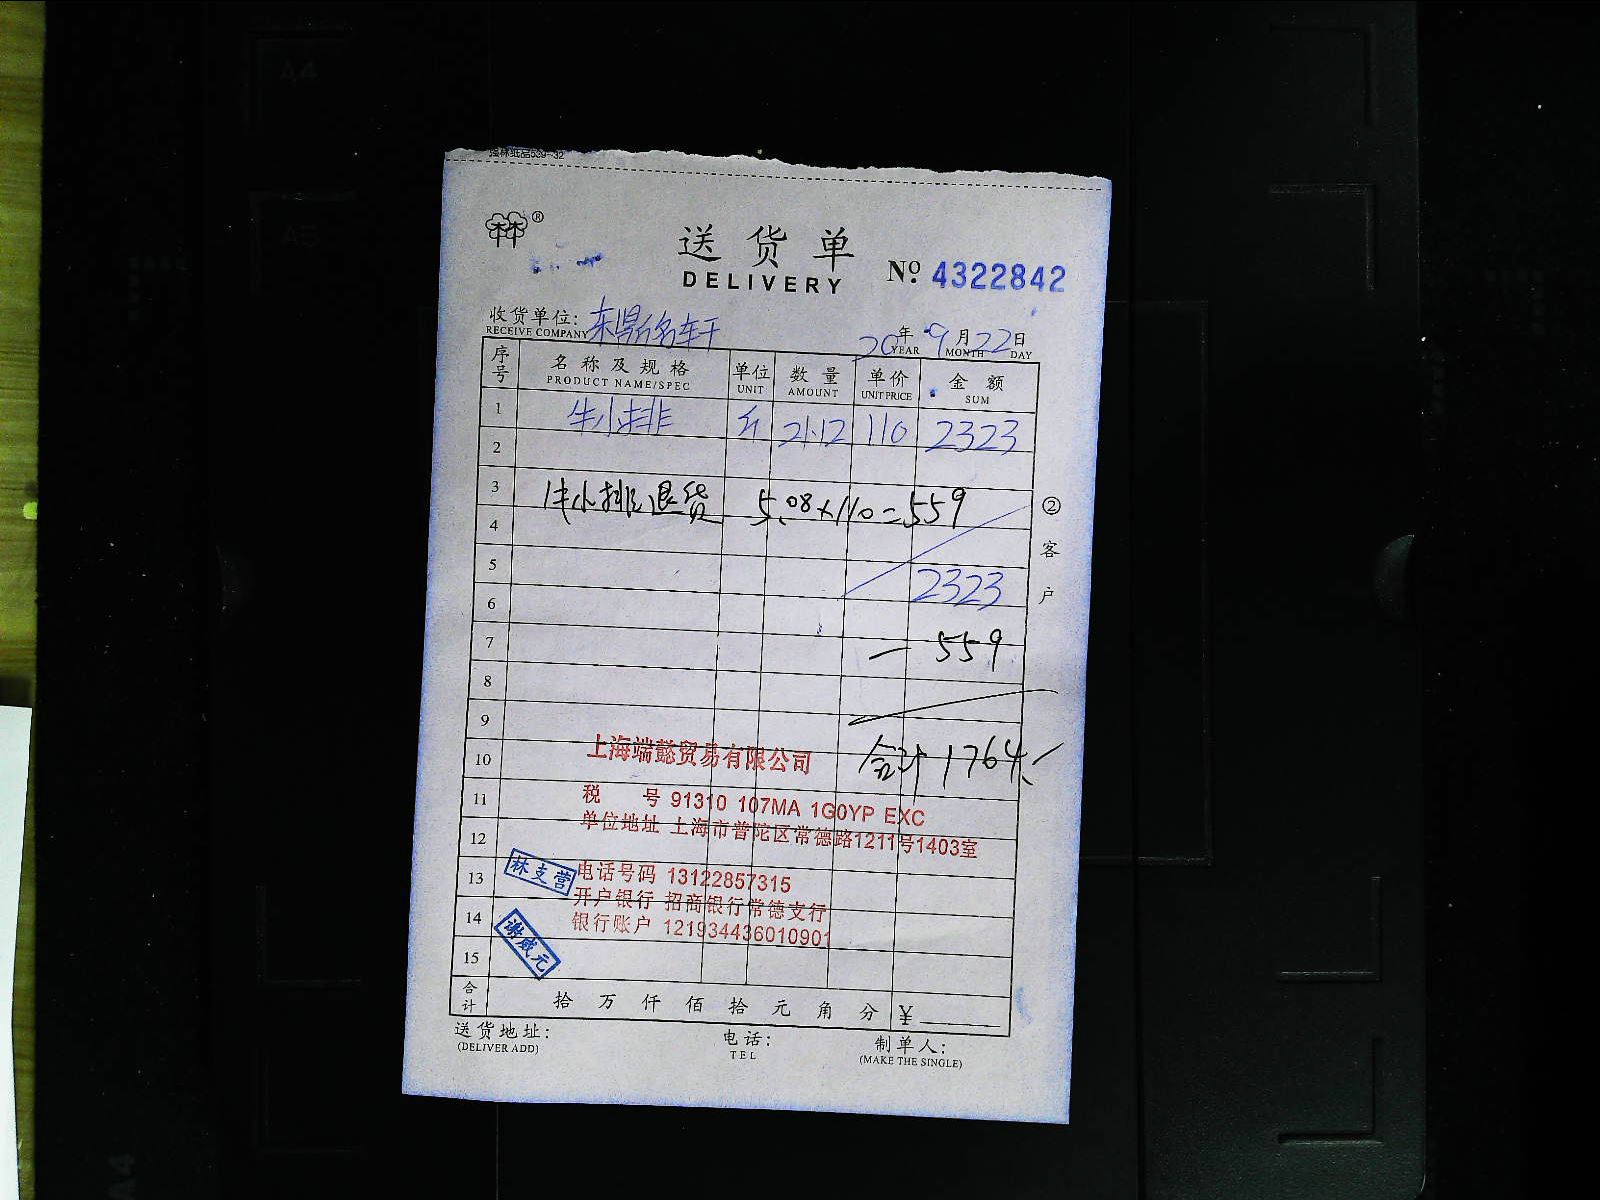 强林纸品539-32
林®
送货单
DELIVERY
№ 4322842
收货单位: 东
RECEIVE COMPANY
20年 9月 22日
YEAR MONTH DAY
序号 名称及规格 单位 数量 单价 金额
PRODUCT NAME/SPEC UNIT AMOUNT UNIT PRICE SUM
1 牛小排 斤 21.12 110 2323
2
3 牛小排退货 5.08×110=559
4
5 2323
6
7 — 559
8
9
10 合计 1764
11
12
13
14
15
② 客户
上海端懿贸易有限公司
税 号 91310 107MA 1G0YP EXC
单位地址 上海市普陀区常德路1211号1403室
电话号码 13122857315
开户银行 招商银行常德支行
银行账户 121934436010901
林支营
谢威元
合计 拾 万 仟 佰 拾 元 角 分 ¥
送货地址: 电话: 制单人:
(DELIVER ADD) TEL (MAKE THE SINGLE)
A4
A5
A4